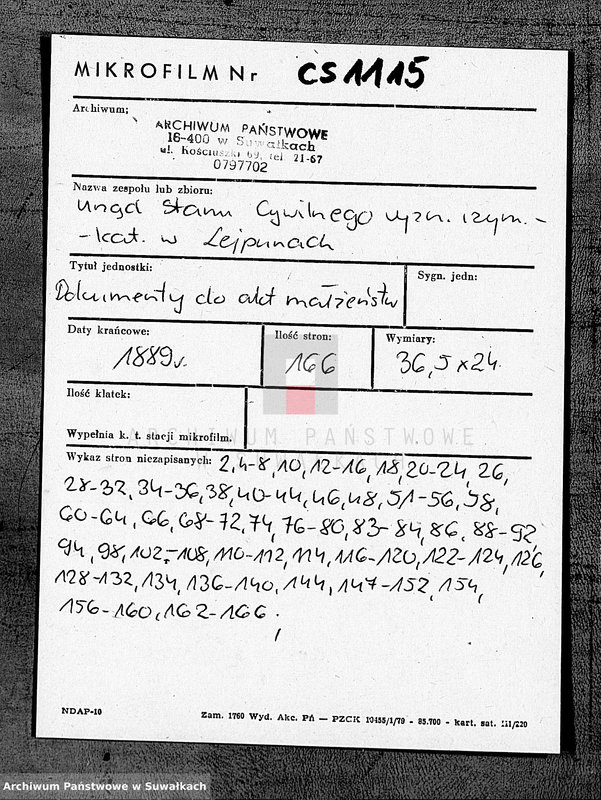 MIKROFILM Nr CS1115
Archiwum:
ARCHIWUM PAŃSTWOWE
16-400 w Suwałkach
ul. Kościuszki 69, tel 21-67
0797702
Nazwa zespołu lub zbioru:
Urząd Stanu Cywilnego wyzn. rzym.-
-kat. w Lejpunach
Tytuł jednostki:
Sygn. jedn:
Dokumenty do akt małżeństw
Daty krańcowe:
Ilość stron:
Wymiary:
1889r.
166
36,5 x 24
Ilość klatek:
Wypełnia k. t. stacji mikrofilm.
ARCHIWUM PAŃSTWOWE
Wykaz stron niezapisanych: 2,4-8,10,12-16,18,20-24,26,
28-32,34-36,38,40-44,46,48,51-56,58,
60-64,66,68-72,74,76-80,83-84,86,88-92,
94,98,102-108,110-112,114,116-120,122-124,126,
128-132,134,136-140,144,147-152,154,
156-160,162-166.
NDAP-10
Zam. 1760 Wyd. Akc. Pń — PZCK 10455/1/79 - 85.700 - kart. sat. III/220
Archiwum Państwowe w Suwałkach